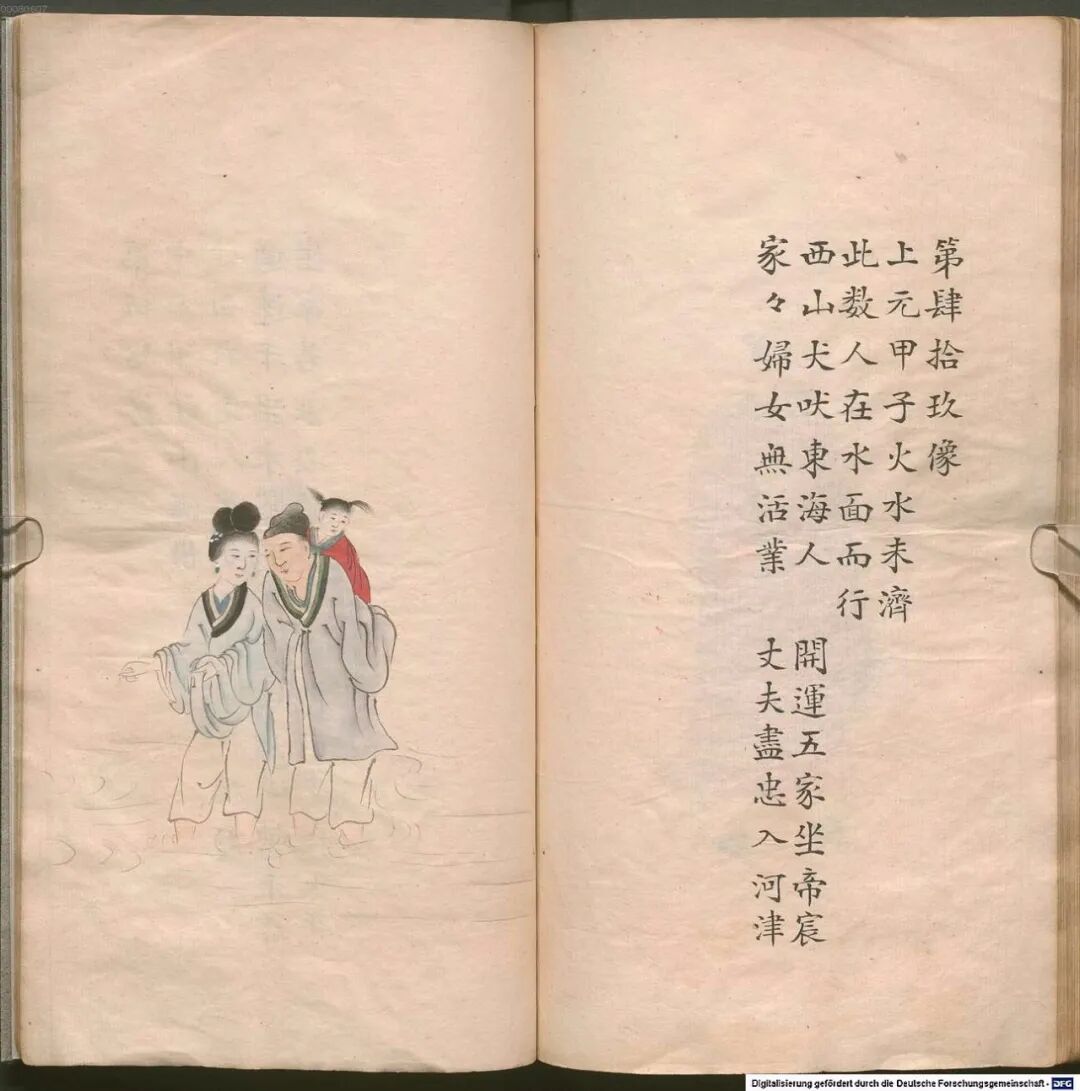 第肆拾玖像
上元甲子火水未濟
此数人在水面而行
西山犬吠東海人 開運五家坐帝宸
家々婦女無活業 丈夫盡忠入河津
00080607
Digitalisierung gefördert durch die Deutsche Forschungsgemeinschaft - DFG